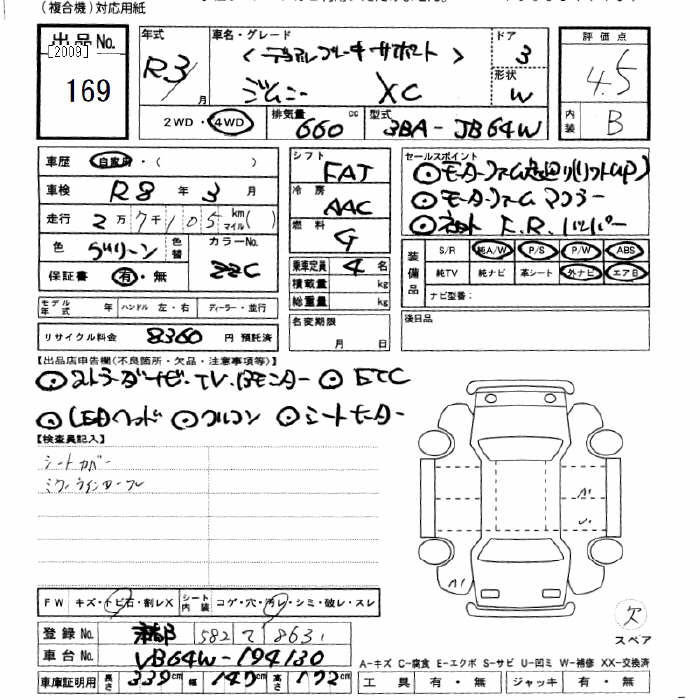 (複合機)対応用紙
出品No.
[2009]
169
年式
R3 月
車名・グレード
(デュアルブレーキサポート)
ジムニー XC
ドア
3
形状
W
評価点
4.5
内装
B
2WD・4WD
排気量 660 cc
型式 3BA-JB64W
車歴 自家用・( )
車検 R8 年 3 月
走行 2万7千105 km マイル( )
色 グリーン
色替
カラーNo.
ZZC
保証書 有・無
シフト
FAT
冷房
AAC
燃料
G
乗車定員 4 名
積載量 kg
総重量 kg
セールスポイント
モーターファーム
モーターファーム マフラー
F.R.バンパー
装備品
S/R 純A/W P/S P/W ABS
純TV 純ナビ 革シート 外ナビ エアB
ナビ型番:
モデル年式 年 ハンドル 左・右 ディーラー・並行
リサイクル料金 8360 円 預託済
名変期限
月 日
後日品
【出品店申告欄(不良箇所・欠品・注意事項等)】
ストラーダナビ・TV.Bモニター ETC
LEDヘッド クルコン シートヒーター
【検査員記入】
シートカバー
FW キズ・トビ石・割レX シート内装 コゲ・穴・汚レ・シミ・破レ・スレ
A1
A1
欠
スペア
登録No. 582 て 8631
車台No. JB64W-194130
車庫証明用 長さ 339cm 幅 147cm 高さ 172cm
A-キズ C-腐食 E-エクボ S-サビ U-凹ミ W-補修 XX-交換済
工具 有・無 ジャッキ 有・無